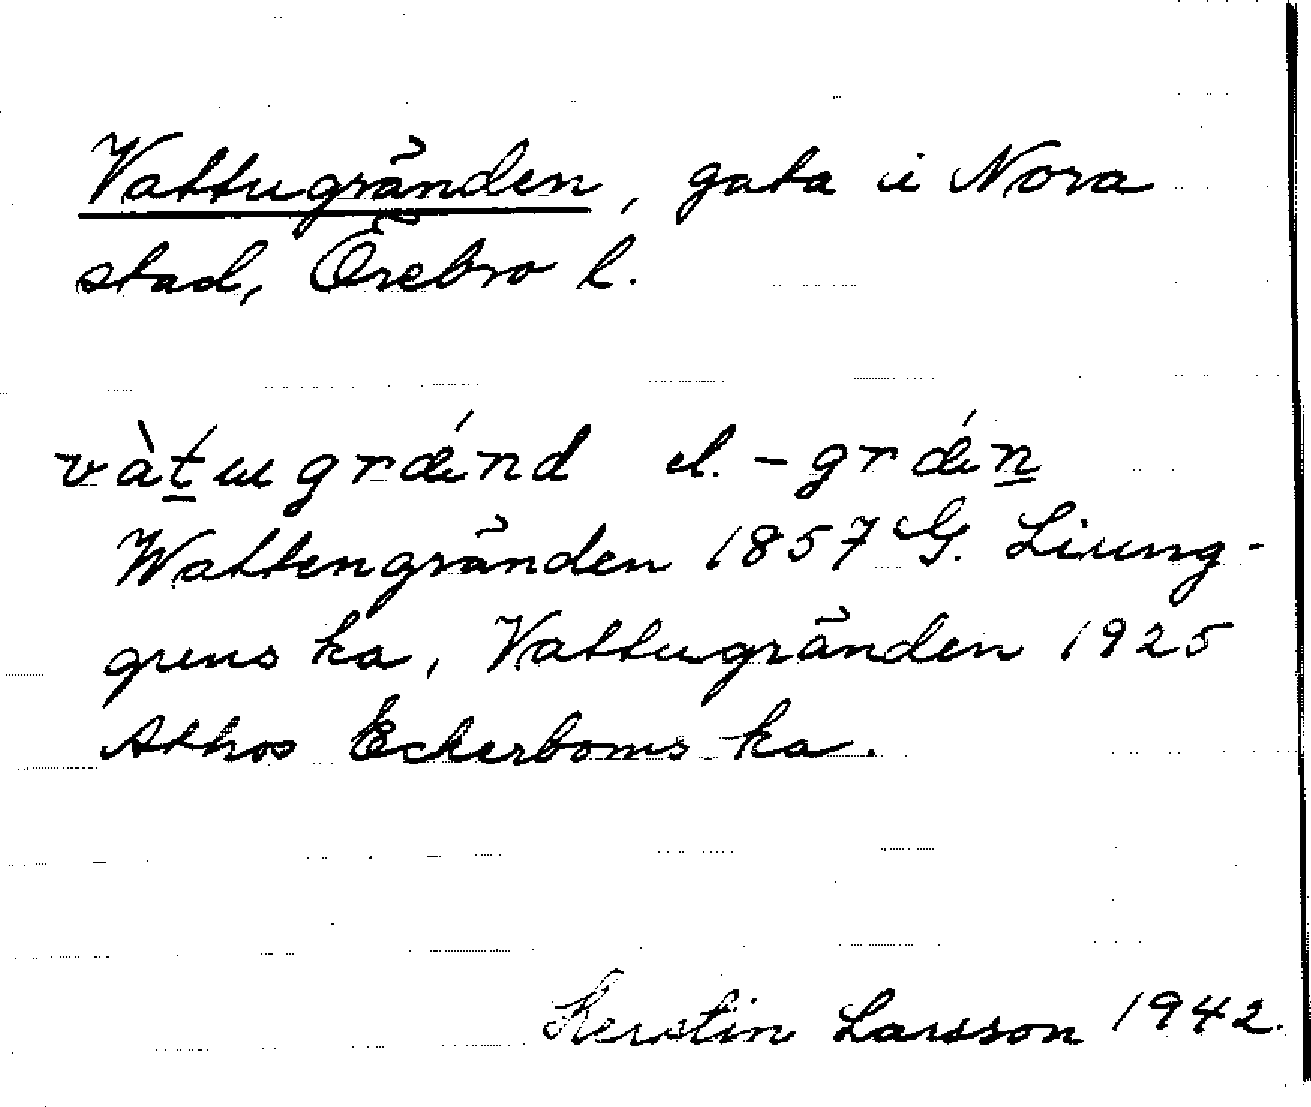 Vattugränden, gata i Nora
stad, Örebro l.
vàt̲ugrǽnd el. -grǽn̲
Wattengränden 1857 G. Liung-
grens ka, Vattugränden 1925
Athos Eckerboms ka.
Kerstin Larsson 1942.